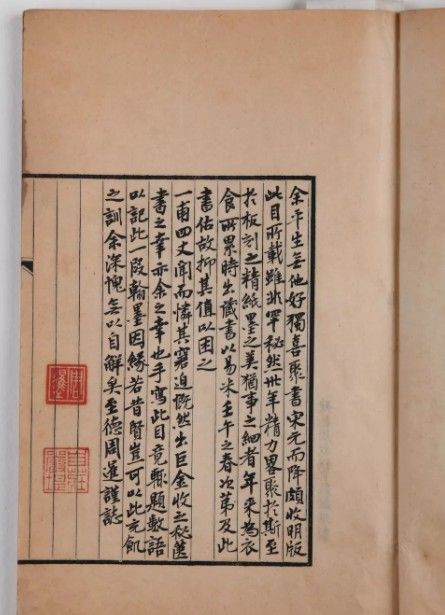 余平生無他好獨喜聚書宋元而降頗收明版
此目所載雖非罕秘然卅年精力畧聚於斯至
於板刻之精紙墨之美猶事之細者年來為衣
食所累時出藏書以易米壬午之春次第及此
書估故抑其值以困之
一甫四丈聞而憐其窘迫慨然出巨金收之秘篋
書之幸亦余之幸也手寫此目竟輒題數語
以記此段翰墨因緣若昔賢豈可以此充飢
之訓余深愧無以自解矣至德周暹謹誌
周暹